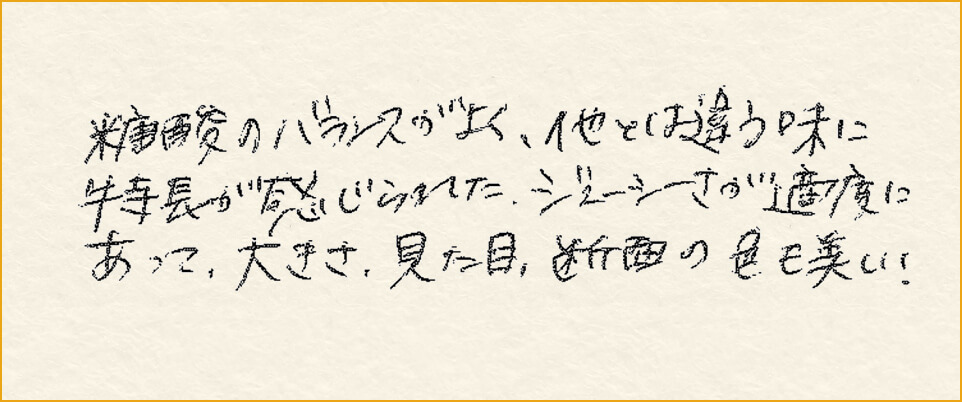 糖酸のバランスがよく、他とは違う味に
特長が感じられた。ジューシーさが適度に
あって、大きさ、見た目、断面の色も美しい!